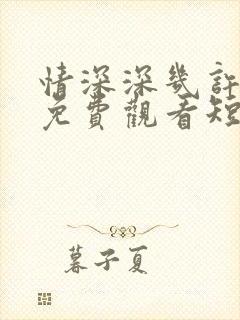 情深深幾許
免費觀看短
暮子夏